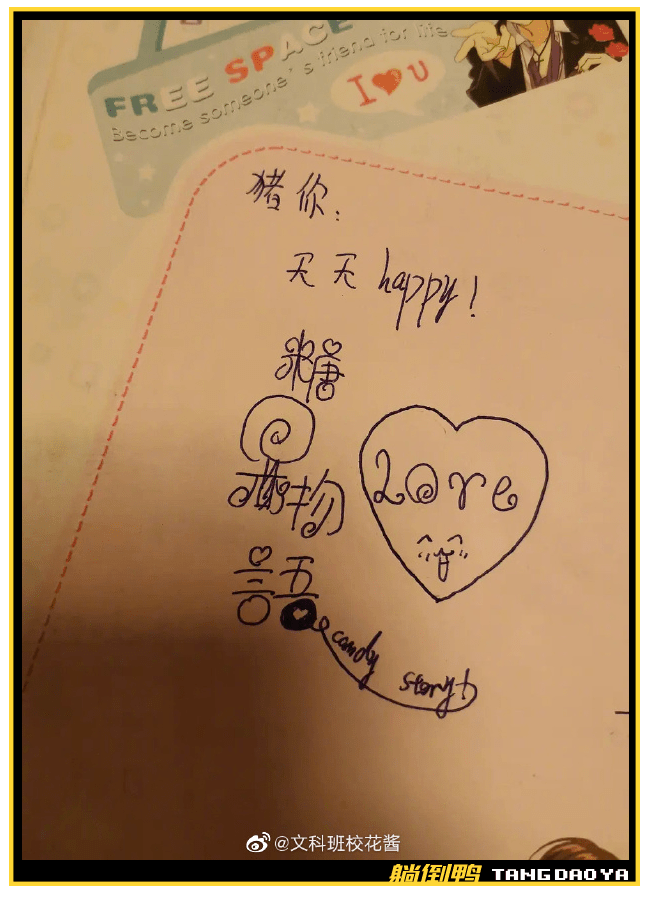 FREE SPACE
Become someone's friend for life
I❤U
猪你:
天天 happy!
糖
果物
言吾
Love
candy story
@文科班校花酱
躺倒鸭 TANG DAO YA